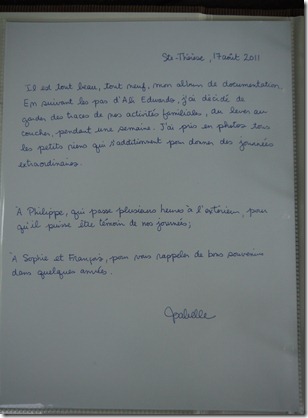 Ste-Thérèse, 17 août 2011
Il est tout beau, tout neuf, mon album de documentation.
En suivant les pas d'Ali Edwards, j'ai décidé de
garder des traces de nos activités familiales, du lever au
coucher, pendant une semaine. J'ai pris en photos tous
les petits riens qui s'additionnent pour donner des journées
extraordinaires.
À Philippe, qui passe plusieurs heures à l'extérieur, pour
qu'il puisse être témoin de nos journées;
À Sophie et François, pour vous rappeler de bons souvenirs
dans quelques années.
Isabelle